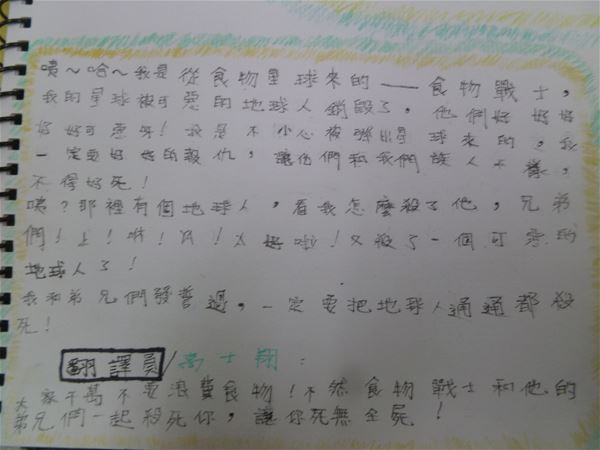 咦~哈~我是從食物星球來的——食物戰士，
我的星球被可惡的地球人銷毀了，他們好好好
好好可惡呀！我是不小心被彈出星球來的，我
一定要好好的報仇，讓他們和我們族人一樣，
不得好死！
咦？那裡有個地球人，看我怎麼殺了他，兄弟
們！上！啊！太好啦！又殺了一個可惡的
地球人了！
我和弟兄們發誓過，一定要把地球人通通都殺
死！
翻譯員/高士翔：
大家千萬不要浪費食物！不然食物戰士和他的
弟兄們一起殺死你，讓你死無全屍！